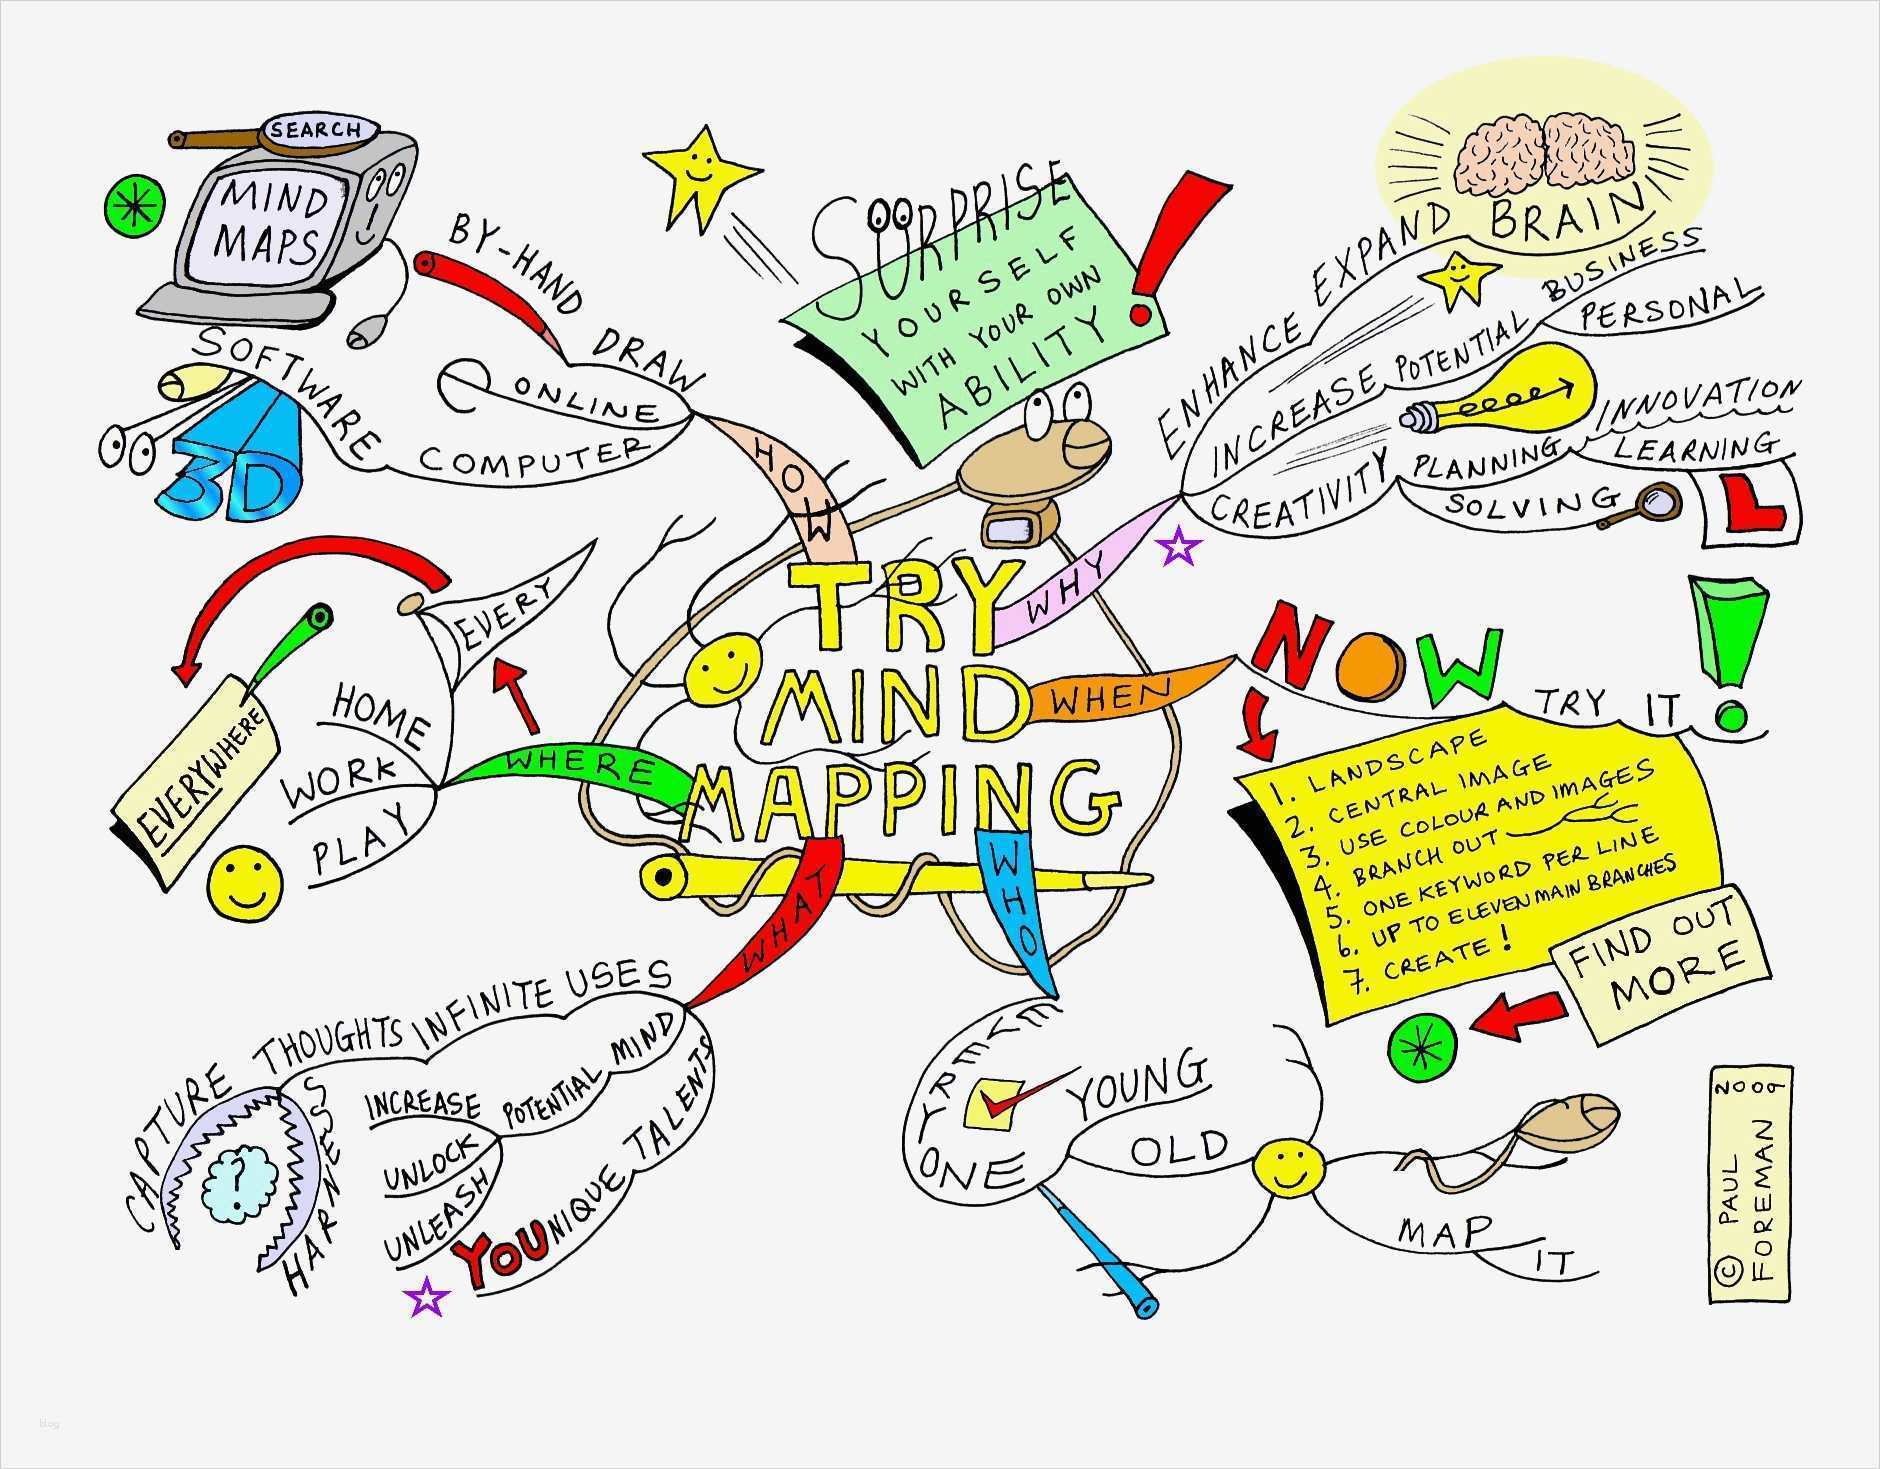 SEARCH
MIND
MAPS
BY-HAND
DRAW
SOFTWARE
ONLINE
COMPUTER
3D
HOW
SURPRISE
YOURSELF
WITH YOUR OWN
ABILITY
EXPAND BRAIN
ENHANCE
BUSINESS
PERSONAL
INCREASE POTENTIAL
INNOVATION
PLANNING
LEARNING
CREATIVITY
SOLVING
L
WHY
TRY
MIND
MAPPING
EVERY
HOME
WORK
PLAY
EVERYWHERE
WHERE
WHEN
NOW
TRY IT
1. LANDSCAPE
2. CENTRAL IMAGE
3. USE COLOUR AND IMAGES
4. BRANCH OUT
5. ONE KEYWORD PER LINE
6. UP TO ELEVEN MAIN BRANCHES
7. CREATE!
FIND OUT
MORE
WHAT
WHO
INFINITE USES
THOUGHTS
CAPTURE
HARNESS
?
MIND
POTENTIAL
INCREASE
UNLOCK
UNLEASH
TALENTS
YOUNIQUE
EVERYONE
YOUNG
OLD
MAP
IT
© PAUL 2009
FOREMAN
blog